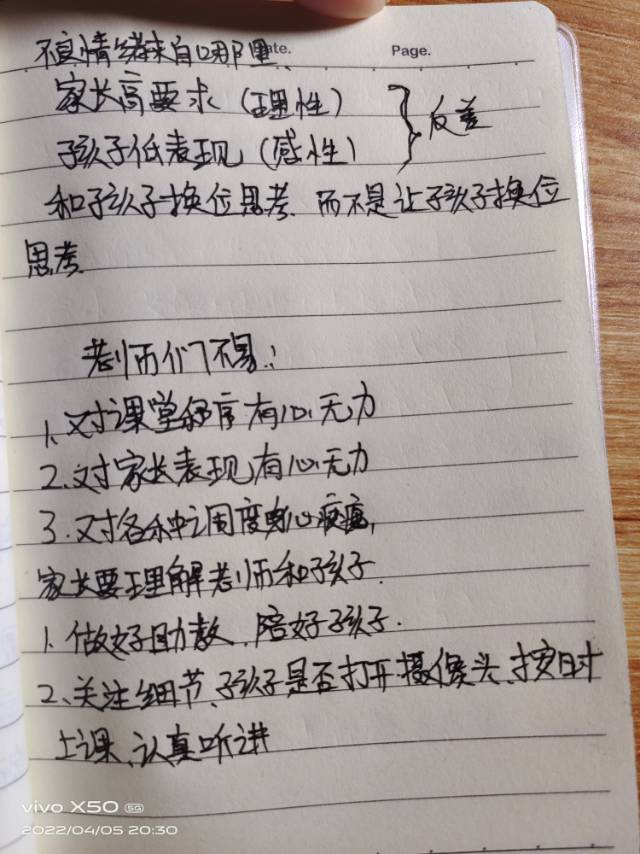 不良情绪来自哪里
ate.
Page.
家长高要求(理性)
孩子低表现(感性)
反差
和孩子换位思考.而不是让孩子换位
思考.
老师们不易:
1、对课堂秩序有心无力
2、对家长表现有心无力
3、对各种调度身心疲惫,
家长要理解老师和孩子.
1、做好助教、陪好孩子.
2、关注细节、孩子是否打开摄像头、按时
上课、认真听讲
vivo X50 5G
2022/04/05 20:30